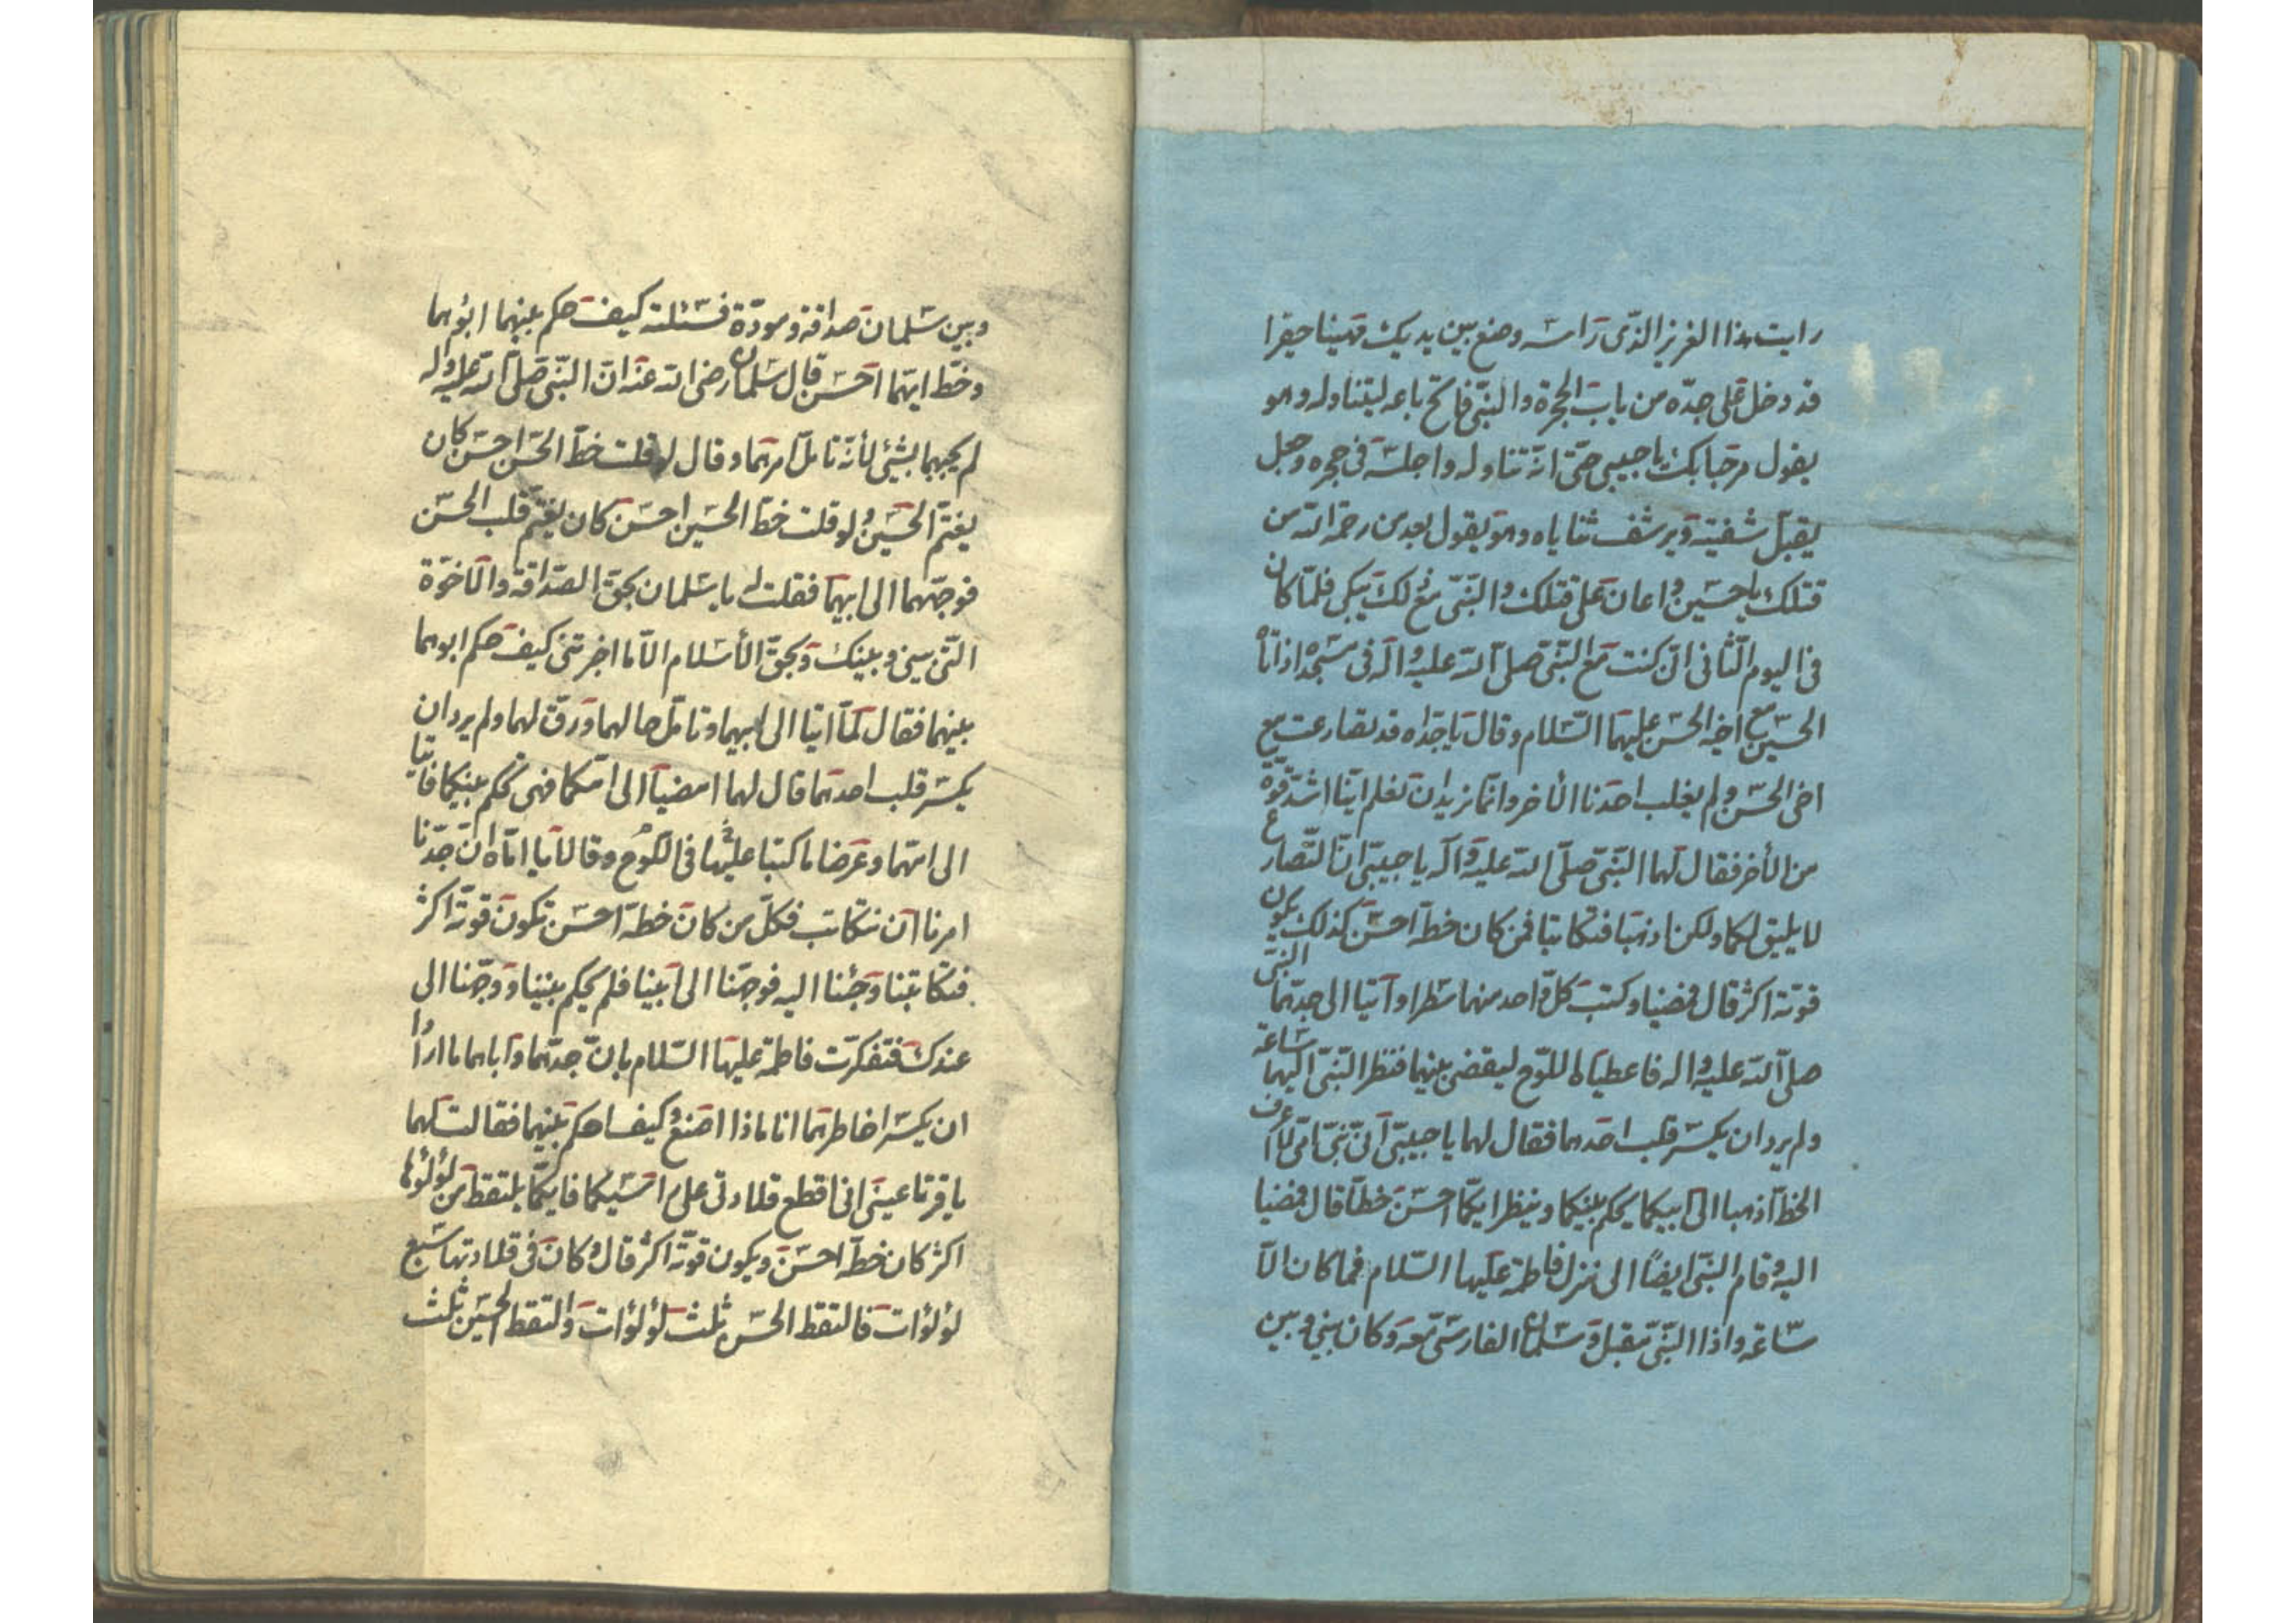 رايت هذا العزيز الذّى رَاسه وضع بين يديك مهينا حقيرا
قد دخل على جدّه من باب الحجرة والنبّى فاتح باعه ليتناوله وهو
يقول مرحبا بك يا حبيبى حتّى انّه تناوله واجلسه فى حجره وجعل
يقبّل شفتيه ويرشف ثناياه وهو يقول بعد من رحمة الله من
قتلك يا حسين واعان على قتلك والنبّى مع ذلك يبكى فلمّا كان
فى اليوم الثّانى انّى كنت مع النبّى صلّى الله عليه واله فى مسجده اذ اتاه
الحسين مع اخيه الحسن عليهما السّلام وقال يا جدّاه قد تصارعت مع
اخى الحسن ولم يغلب احدنا الأخر وانّما نريد ان نعلم ايّنا اشدّ قوّة
من الأخر فقال لهما النبّى صلّى الله عليه وآله يا حبيبىّ انّ التّصارع
لا يليق لكما ولكن اذهبا فتكاتبا فمن كان خطّه احسن كذلك يكون
قوّته اكثر قال فمضيا وكتب كلّ واحد منهما سطرا وآتيا الى جدّهما النبّى
صلّى الله عليه واله فاعطياه اللّوح ليقضى بينهما فنظر النبّى اليهما ساعة
ولم يرد ان يكسر قلب احدهما فقال لهما يا حبيبىّ انّى نبّى امّى لا اعرف
الخطّ اذهبا الى ابيكما يحكم بينكما وينظر ايّكما احسن خطّا قال فمضيا
اليه وقام النبّى ايضاً الى منزل فاطمة عليها السّلام فما كان الّا
ساعة واذا النبّى مقبل وسلمان الفارسى معه وكان بينى وبين
وبين سلمان صداقة ومودّة فسئلته كيف حكم بينهما ابوهما
وخطّ ايّهما احسن قال سلمان رضى الله عنه انّ النبّى صلّى الله عليه واله
لم يجبهما بشئ لأنّه تامّل امرهما وقال لو قلت خطّ الحسن احسن كان
يغتمّ الحسين ولو قلت خطّ الحسين احسن كان يغتمّ قلب الحسن
فوجّههما الى ابيهما فقلت له يا سلمان بحقّ الصّداقة والأخوّة
التّى بينى وبينك وبحقّ الأسلام الّا ما اخبرتنى كيف حكم ابوهما
بينهما فقال لمّا اتيا الى ابيهما وتامّل حالهما ورقّ لهما ولم يرد ان
يكسر قلب احدهما قال لهما امضيا الى امّكما فهى تحكم بينكما فاتيا
الى امّهما وعرضا ما كتبا عليها فى اللّوح وقالا يا امّاه انّ جدّنا
امرنا ان نتكاتب فكلّ من كان خطّه احسن تكون قوّته اكثر
فتكاتبنا وجئنا اليه فوجّهنا الى ابينا فلم يحكم بيننا ووجّهنا الى
عندك فتفكرّت فاطمة عليها السّلام بانّ جدّهما وآباهما ما ارادا
ان يكسرا خاطرهما انا ماذا اصنع وكيف احكم بينهما فقالت لهما
يا قرتا عينى انى اقطع قلادتى على راسيكما فايّكما يلتقط من لؤلؤها
اكثر كان خطّه احسن ويكون قوّته اكثر قال وكان فى قلادتها سبع
لؤلؤات فالتقط الحسن ثلث لؤلؤات والتقط الحسين ثلث